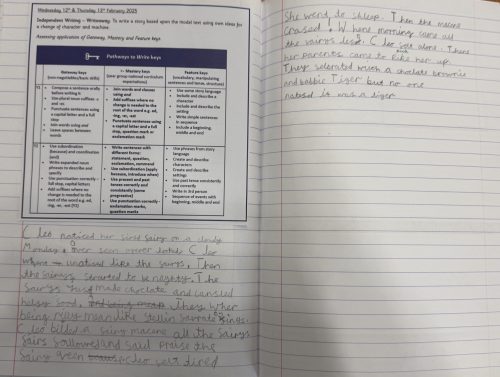 Wednesday 12th & Thursday 13th February 2025
Independent Writing – Writeaway. To write a story based upon the model text using own ideas for a change of character and machine
Assessing application of Gateway, Mastery and Feature keys
Pathways to Write keys
Gateway keys (non-negotiables/basic skills)
Mastery keys (year group national curriculum expectations)
Feature keys (vocabulary, manipulating sentences and tense, structure)
Y1
Compose a sentence orally before writing it
Use plural noun suffixes -s and -es
Punctuate sentences using a capital letter and a full stop
Join words using and
Leave spaces between words
Join words and clauses using and
Add suffixes where no change is needed to the root of the word e.g. ed, ing, -er, -est
Punctuate sentences using a capital letter and a full stop, question mark or exclamation mark
Use some story language
Include and describe a character
Include and describe the setting
Write simple sentences in sequence
Include a beginning, middle and end
Y2
Use subordination (because) and coordination (and)
Write expanded noun phrases to describe and specify
Use punctuation correctly - full stop, capital letters
Add suffixes where no change is needed to the root of the word e.g. ed, ing, -er, -est (Y2)
Write sentences with different forms: statement, question, exclamation, command
Use subordination (apply because, introduce when)
Use present and past tenses correctly and consistently (some progressive)
Use punctuation correctly - exclamation marks, question marks
Use phrases from story language
Create and describe characters
Create and describe settings
Use past tense consistently and correctly
Write in 3rd person
Sequence of events with beginning, middle and end
Cleo noticed her sind sairy on a cloudy
Monday. seen over Cleo
like the sairys. Then
the sairys sararted to be naghty. The
sairys made choclate and cansled
helsy sood, They wher
being rylly mean like stellin things.
Cleo bilded a sairy macene all the sairys
sairs sollowed and said praise the
sairy qeen Cleo tired
She werd do shleep. Then the macene
crased! Whene morning came all
the sairys Cleo selt alone. Thene
her parents came to Bike her up.
They selerated with a choclate brownie
and bobbie Tiger but no one
notised it was a tiger